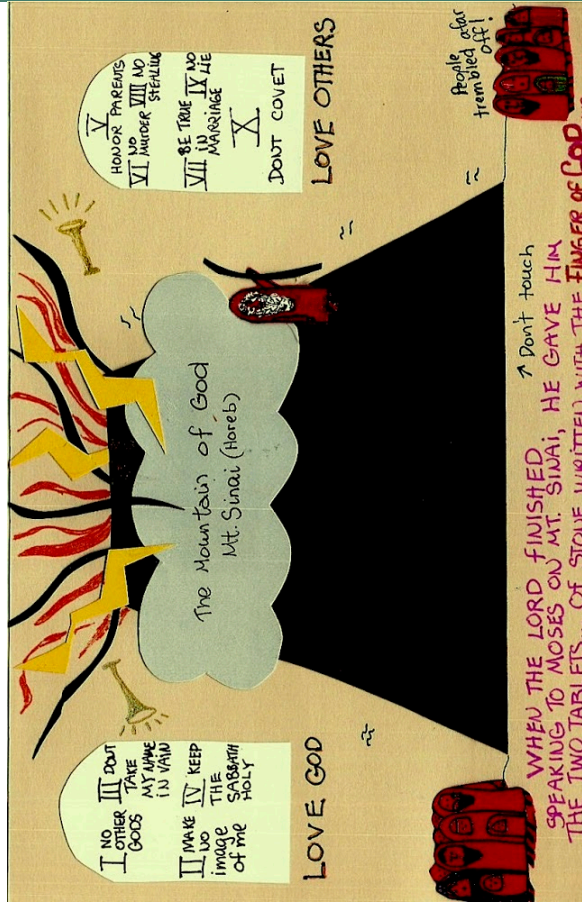 I NO OTHER GODS
II MAKE NO image of me
III DONT TAKE MY NAME IN VAIN
IV KEEP THE SABBATH HOLY
LOVE GOD
The Mountain of God
Mt. Sinai (Horeb)
V
HONOR PARENTS
VI NO MURDER
VIII NO STEALING
VII BE TRUE IN MARRIAGE
IX NO LIE
X
DONT COVET
LOVE OTHERS
People afar
trembled
off!
↗ Don't touch
WHEN THE LORD FINISHED
SPEAKING TO MOSES ON MT. SINAI, HE GAVE HIM
THE TWO TABLETS OF STONE WRITTEN WITH THE FINGER OF GOD.